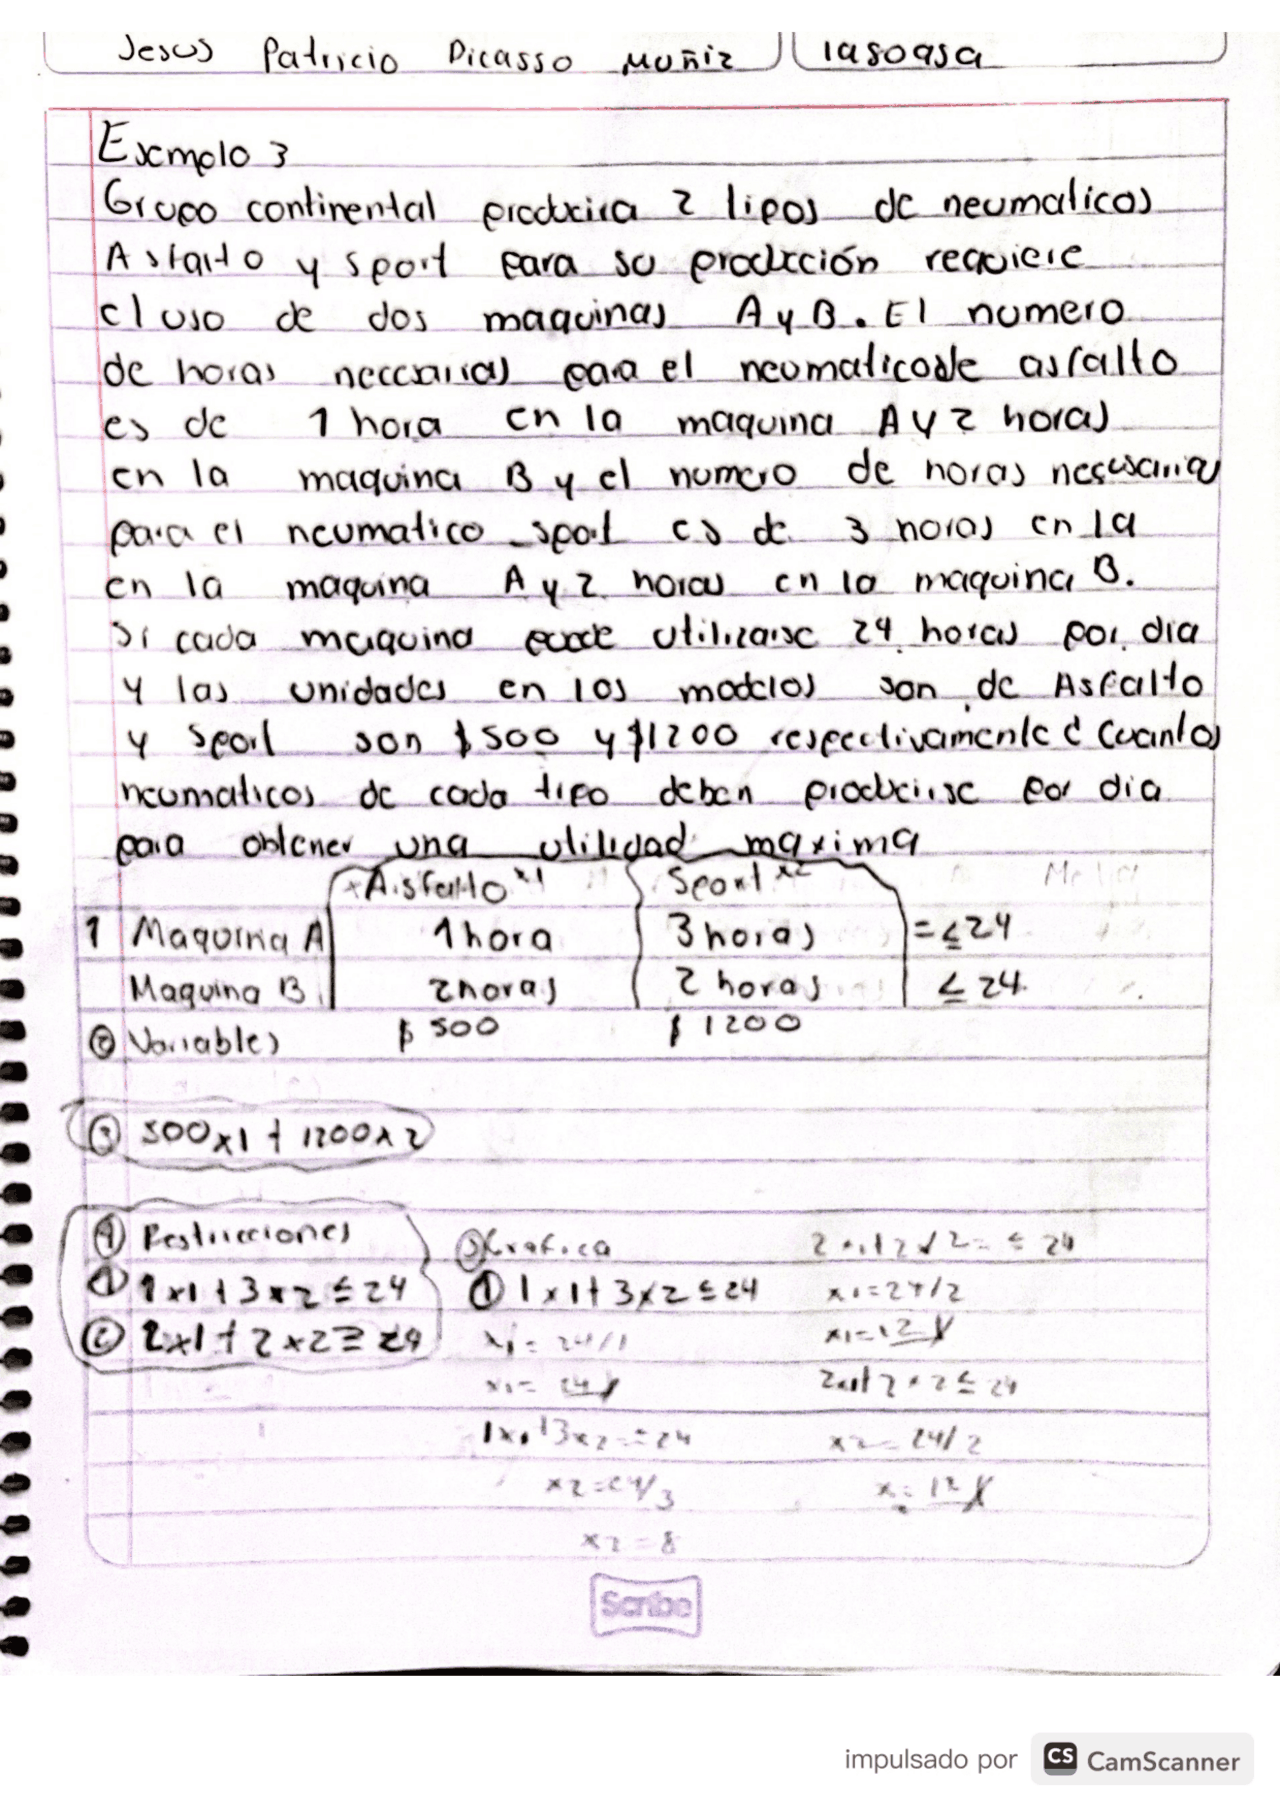 Jesus Patricio Dicasso Muñiz
Ejemplo 3
Grupo continental producira 2 tipos de neumaticos
Asfalto y sport para su producción requiere
el uso de dos maquinas A y B. El numero
de horas necesarias para el neumatico de asfalto
es de 1 hora en la maquina A y 2 horas
en la maquina B y el numero de horas necesarias
para el neumatico sport es de 3 horas en la
en la maquina A y 2 horas en la maquina B.
Si cada maquina puede utilizarse 24 horas por dia
y las unidades en los modelos son de Asfalto
y Sport son $500 y $1200 respectivamente ¿Cuantos
neumaticos de cada tipo deben producirse por dia
para obtener una utilidad maxima
Asfalto x1 Sport x2
1 Maquina A 1 hora 3 horas = ≤ 24
Maquina B 2 horas 2 horas ≤ 24
② Variables $ 500 $ 1200
③ 500x1 + 1200x2
④ Restricciones
① 1x1 + 3x2 ≤ 24
② 2x1 + 2x2 ≥ 24
⑤ Grafica
① 1x1 + 3x2 ≤ 24
x1 = 24/1
x1 = 24
1x1 + 3x2 = ≤ 24
x2 = 24/3
x2 = 8
2x1 + 2x2 = ≤ 24
x1 = 24/2
x1 = 12
2x1 + 2x2 ≤ 24
x2 = 24/2
x2 = 12
Scribe
impulsado por CS CamScanner